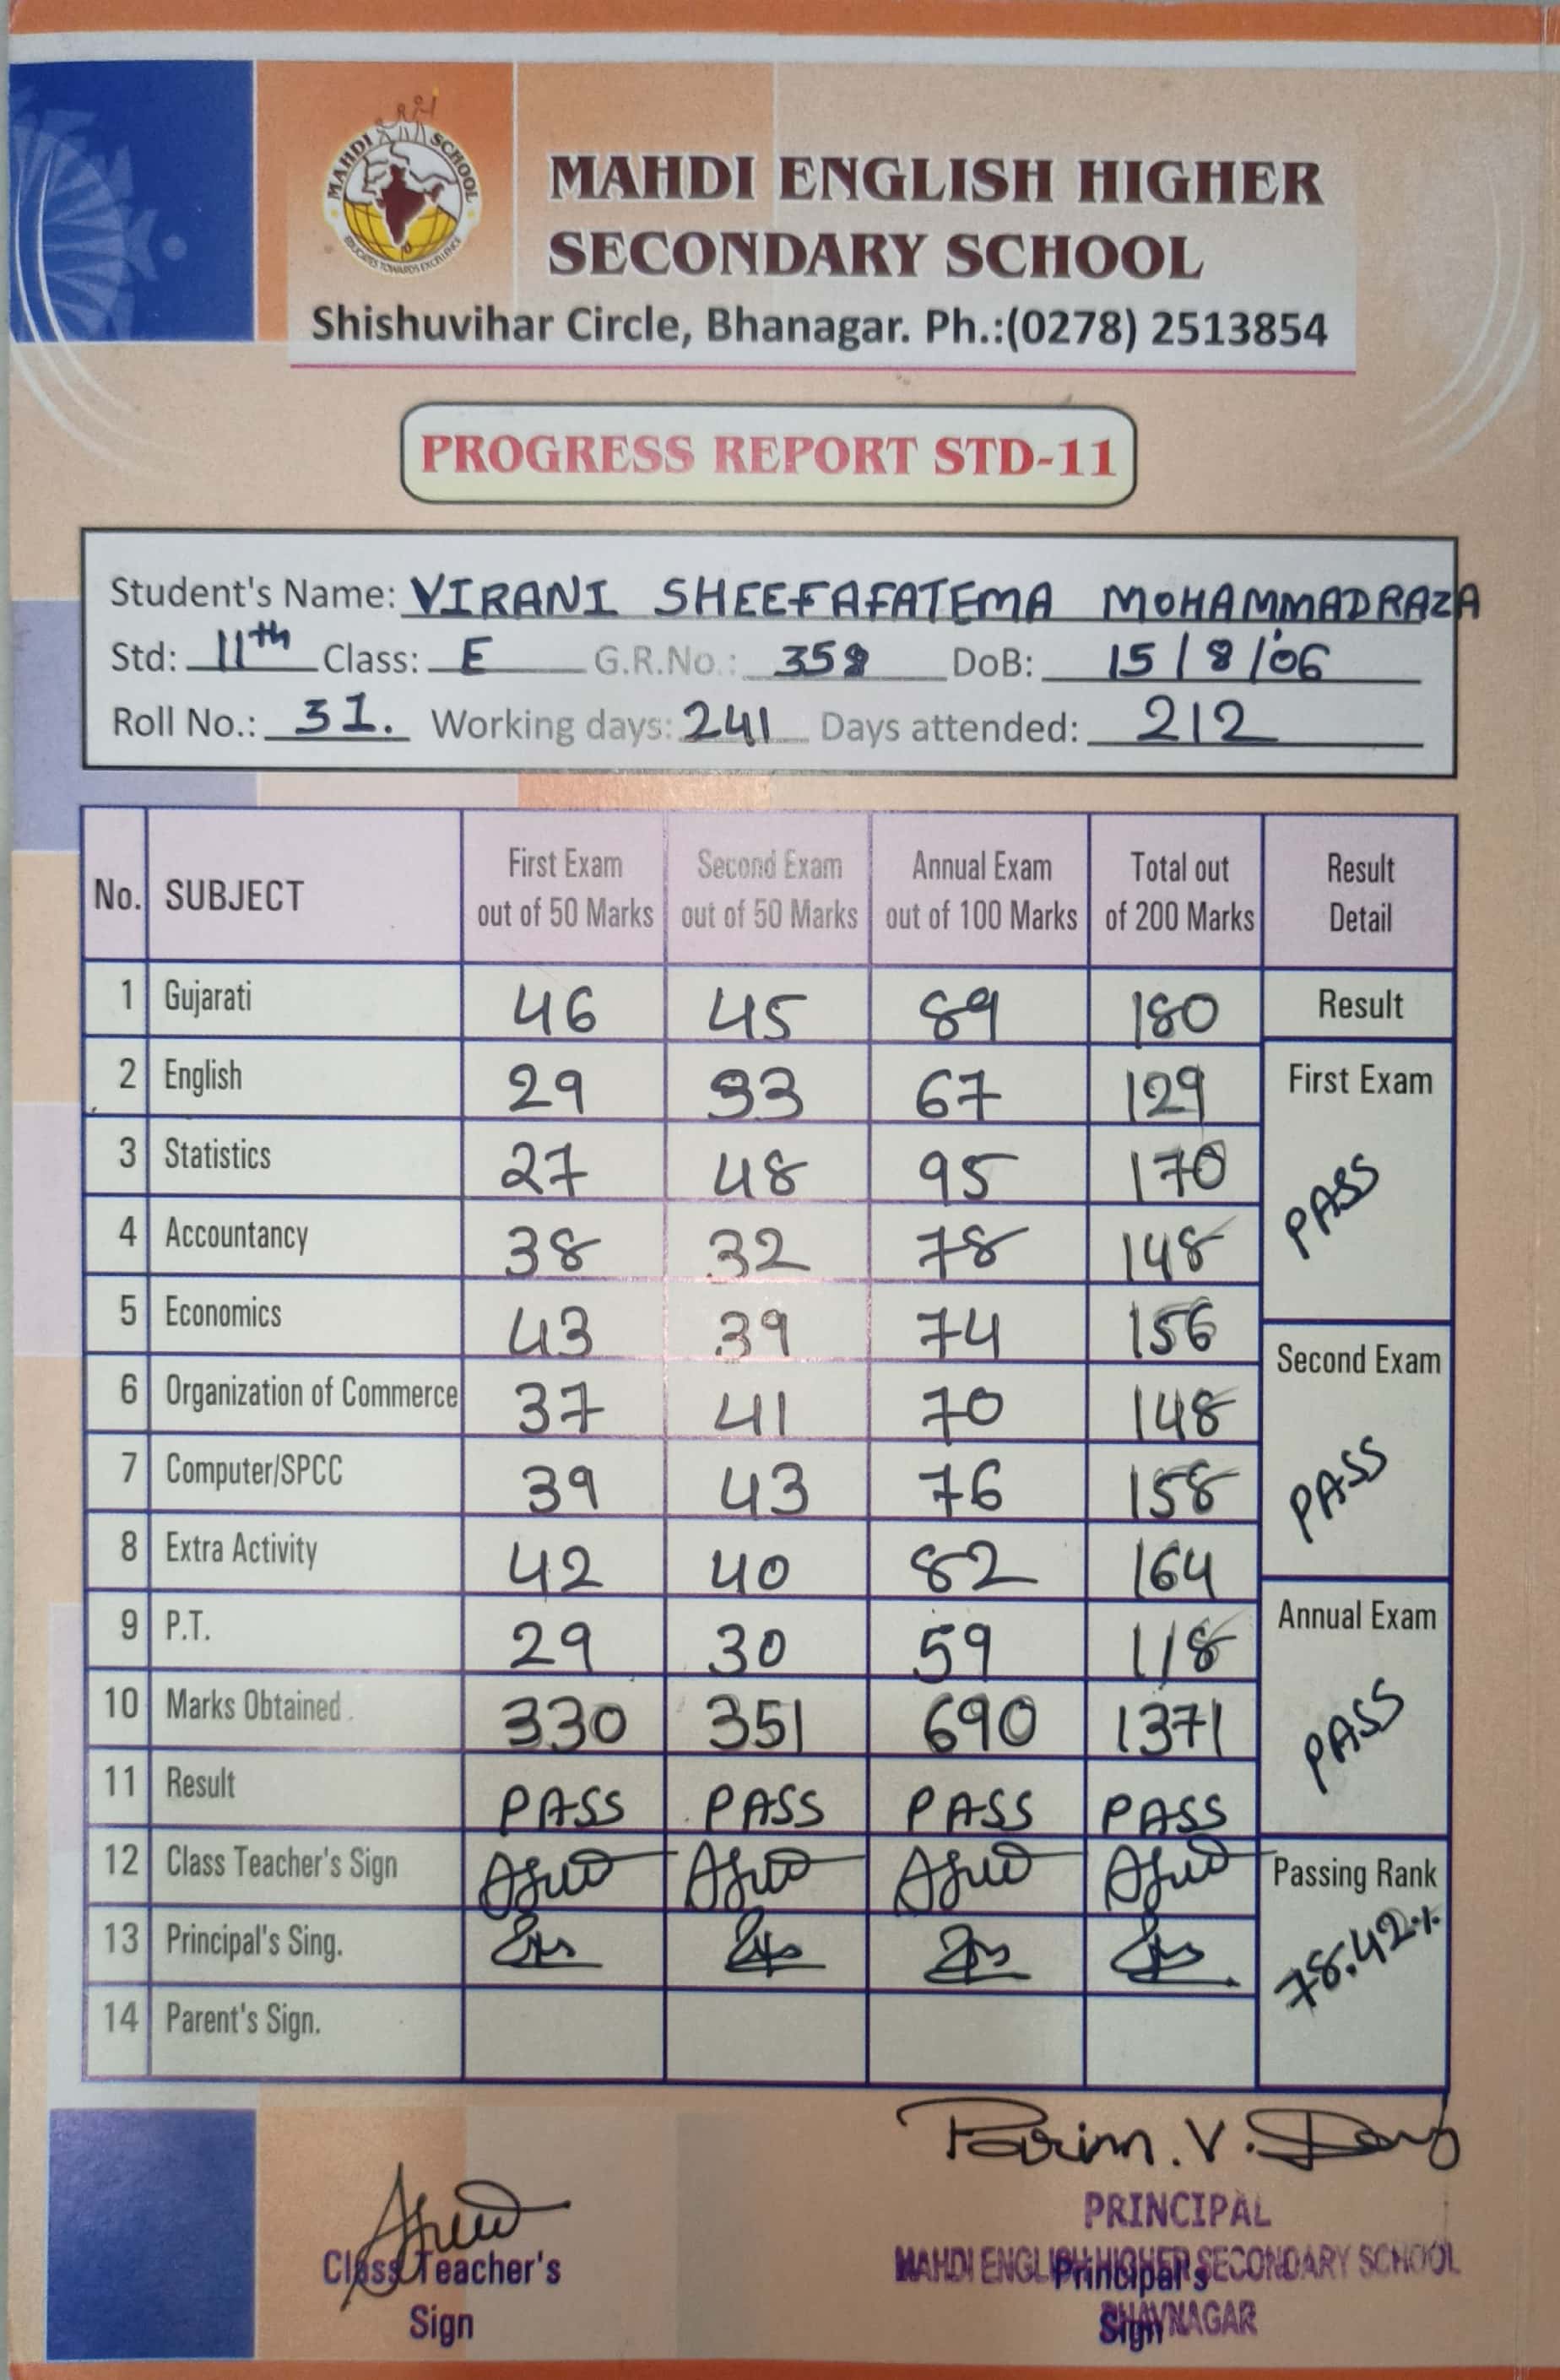 MAHDI SCHOOL
EDUCATES TOWARDS EXCELLENCE
MAHDI ENGLISH HIGHER
SECONDARY SCHOOL
Shishuvihar Circle, Bhanagar. Ph.:(0278) 2513854
PROGRESS REPORT STD-11
Student's Name: VIRANI SHEEFAFATEMA MOHAMMADRAZA
Std: 11th Class: E G.R.No.: 358 DoB: 15/8/06
Roll No.: 31. Working days: 241 Days attended: 212
No. SUBJECT First Exam out of 50 Marks Second Exam out of 50 Marks Annual Exam out of 100 Marks Total out of 200 Marks Result Detail
1 Gujarati 46 45 89 180 Result
2 English 29 33 67 129 First Exam
3 Statistics 27 48 95 170 PASS
4 Accountancy 38 32 78 148
5 Economics 43 39 74 156
6 Organization of Commerce 37 41 70 148 Second Exam
7 Computer/SPCC 39 43 76 158 PASS
8 Extra Activity 42 40 82 164
9 P.T. 29 30 59 118 Annual Exam
10 Marks Obtained. 330 351 690 1371 PASS
11 Result PASS PASS PASS PASS
12 Class Teacher's Sign Passing Rank
13 Principal's Sing. 78.42%
14 Parent's Sign.
Class Teacher's
Sign
PRINCIPAL
MAHDI ENGLISH HIGHER SECONDARY SCHOOL
Principal's
BHAVNAGAR
Sign